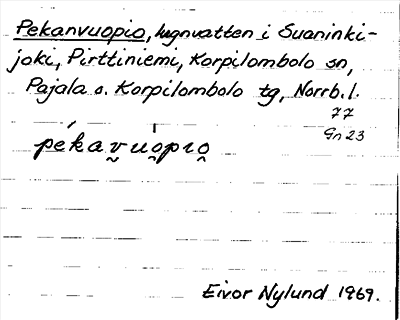 Pekanvuopio, lugnvatten i Suaninki-
joki, Pirttiniemi, Korpilombolo sn,
Pajala o. Korpilombolo tg, Norrb.l.
77
Gn 23
pékav̬u̯ópıo̯
Eivor Nylund 1969.